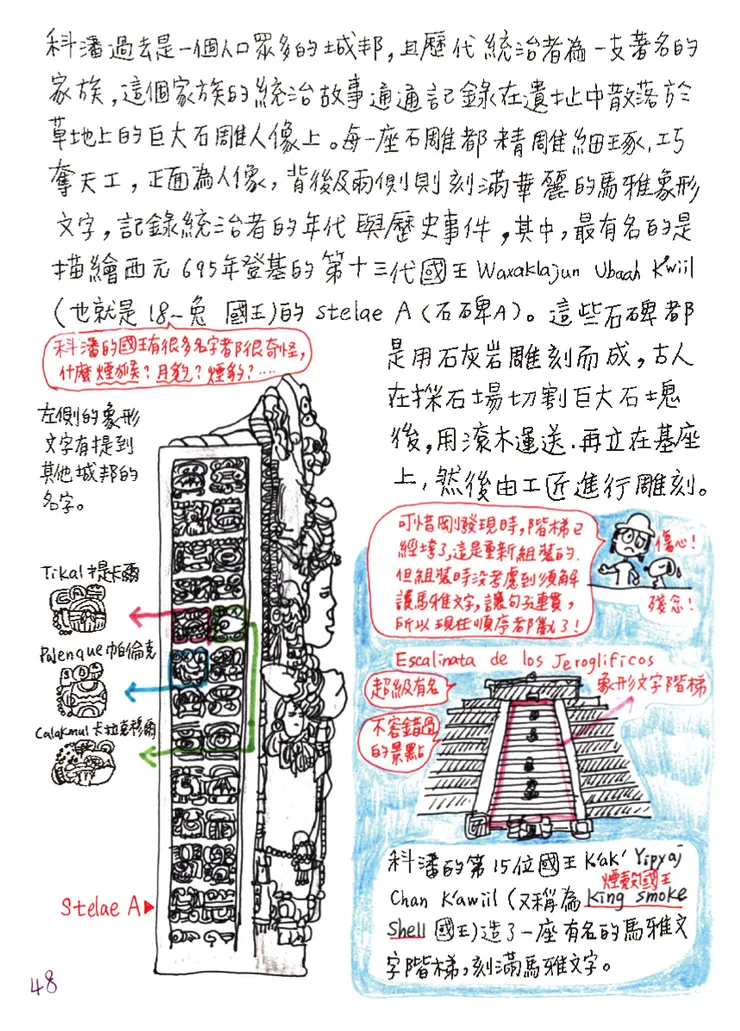 科潘過去是一個人口眾多的城邦，且歷代統治者為一支著名的
家族，這個家族的統治故事通通記錄在遺址中散落於
草地上的巨大石雕人像上。每一座石雕都精雕細琢，巧
奪天工，正面為人像，背後及兩側則刻滿華麗的馬雅象形
文字，記錄統治者的年代與歷史事件，其中，最有名的是
描繪西元695年登基的第十三代國王Waxaklajun Ubaah K'wiil
(也就是18-兔 國王)的 stelae A (石碑A)。這些石碑都
是用石灰岩雕刻而成，古人
在採石場切割巨大石塊
後，用滾木運送．再立在基座
上，然後由工匠進行雕刻。
科潘的國王有很多名字都很奇怪，
什麼煙猴？月豹？煙豹？....
左側的象形
文字有提到
其他城邦的
名字。
Tikal 提卡爾
Palenque 帕倫克
Calakmul 卡拉克穆爾
Stelae A
可惜剛發現時，階梯已
經垮了，這是重新組裝的．
但組裝時沒考慮到須解
讀馬雅文字，讓句子連貫，
所以現在順序都亂了！
傷心！
殘念！
Escalinata de los Jeroglificos
象形文字階梯
超級有名
不容錯過
的景點
科潘的第15位國王K'ak' Yipyaj
Chan K'awiil (又稱為 King smoke
煙殼國王
Shell 國王)造了一座有名的馬雅文
字階梯，刻滿馬雅文字。
48